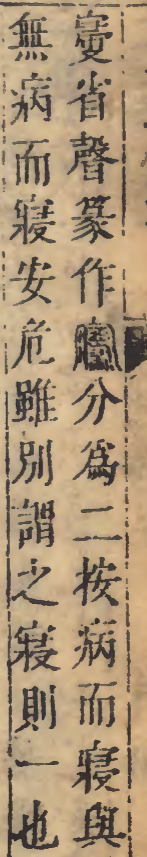 㝲省聲篆作𡪢分爲二按病而寢與
無病而寢安危雖別謂之寢則一也